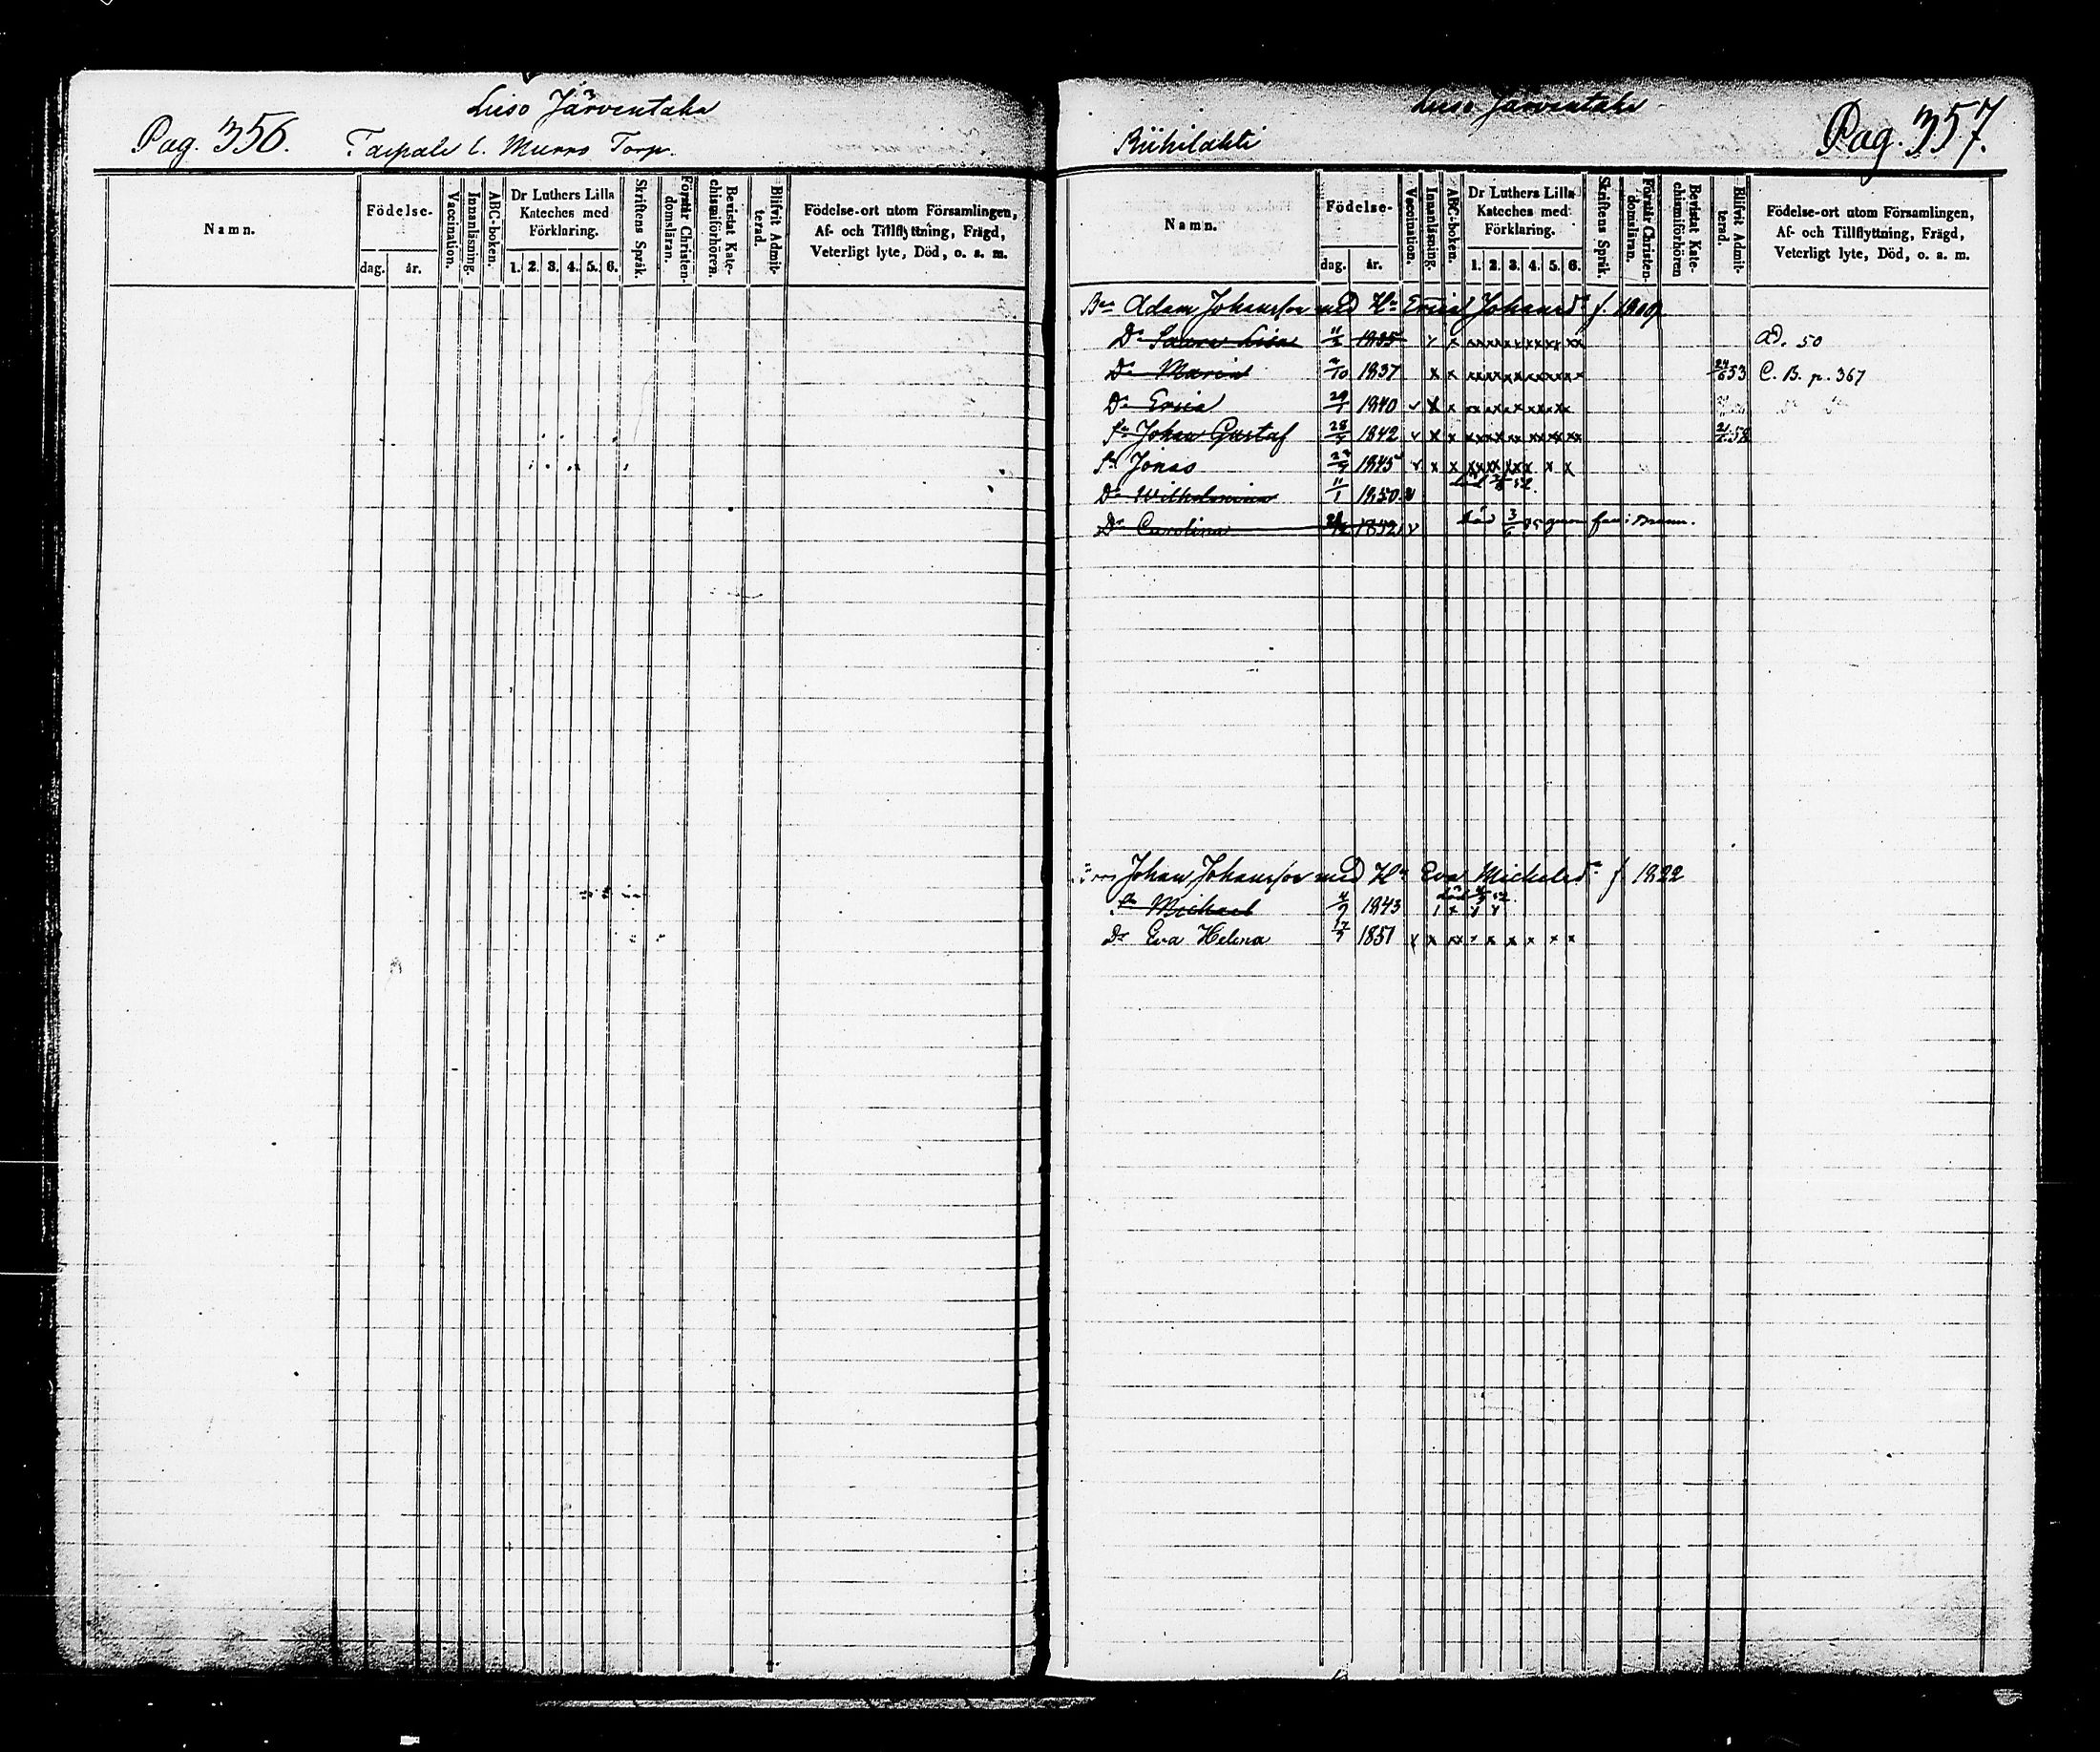 Luso Järventaka
Pag. 356. Taipale l. Murro Torp.
Namn.
Födelse-
dag. år.
Vaccination.
Innanläsning.
ABC-boken.
Dr Luthers Lilla
Kateches med
Förklaring.
1. 2. 3. 4. 5. 6.
Skriftens Språk.
Förstår Christen-
domsläran.
Bevistat Kate-
chismiförhören.
Blifvit Admit-
terad.
Födelse-ort utom Församlingen,
Af- och Tillflyttning, Frägd,
Veterligt lyte, Död, o. s. m.
Luso Järventaka
Riihilahti Pag. 357.
Namn.
Födelse-
dag. år.
Vaccination.
Innanläsning.
ABC-boken.
Dr Luthers Lilla
Kateches med
Förklaring.
1. 2. 3. 4. 5. 6.
Skriftens Språk.
Förstår Christen-
domsläran.
Bevistat Kate-
chismiförhören
Blifvit Admit-
terad.
Födelse-ort utom Församlingen,
Af- och Tillflyttning, Frägd,
Veterligt lyte, Död, o. s. m.
Adam Johansson med Hu Erica Johansdr f. 1809
Dr 1835 50
Dr Maria 7/10 1837 24/6 53 C. B. p. 367
Dr Erica 29/1 1840
Sn Johan Gustaf 28/4 1842 58
Sn Jonas 22/9 1845
Dr Wilhelmina 11/1 1850 död 52
Dr Carolina 1852 död 3/6
Johan Johansson med Hu Eva Michelsdr f 1822
Sn Michael 4/9 1843 död 52
Dr Eva Helena 17/7 1851